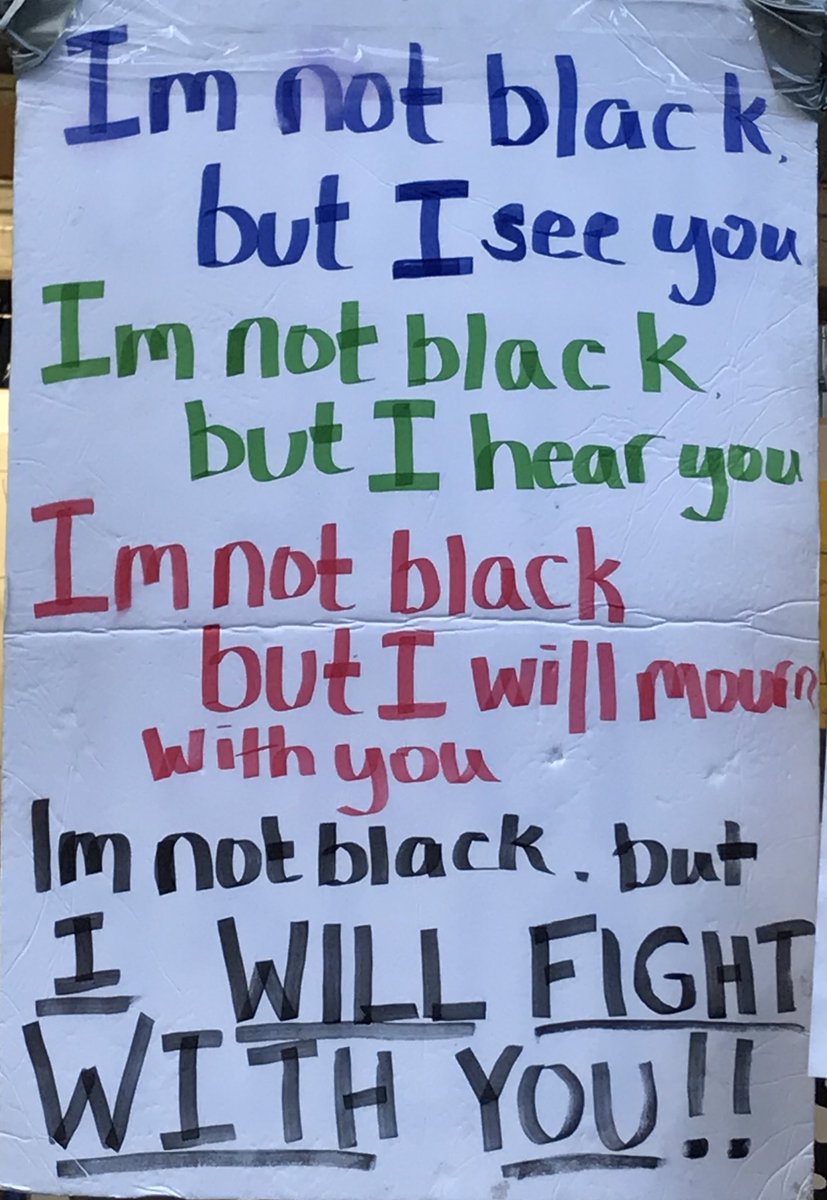 Im not black,
but I see you
Im not black,
but I hear you
Im not black
but I will mourn
with you
Im not black. but
I WILL FIGHT
WITH YOU!!